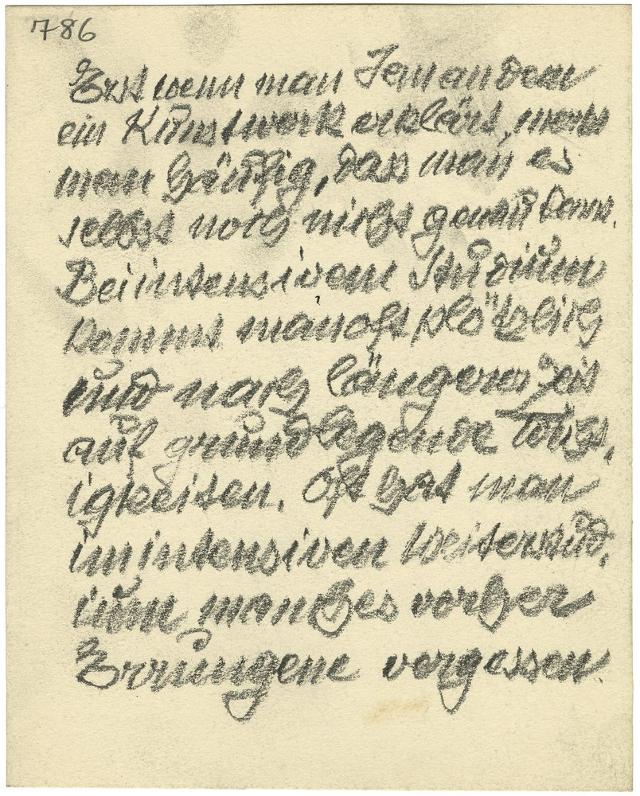 786
Erst wenn man Jemandem
ein Kunstwerk erklärt, merkt
man häufig, dass man es
selbst noch nicht genau kennt.
Bei intensivem Studium
kommt man oft plötzlich
und nach längerer Zeit
auf grundlegende Wicht,
igkeiten. Oft hat man
im intensiven Weiterstud,
ium manches vorher
Errungene vergessen.